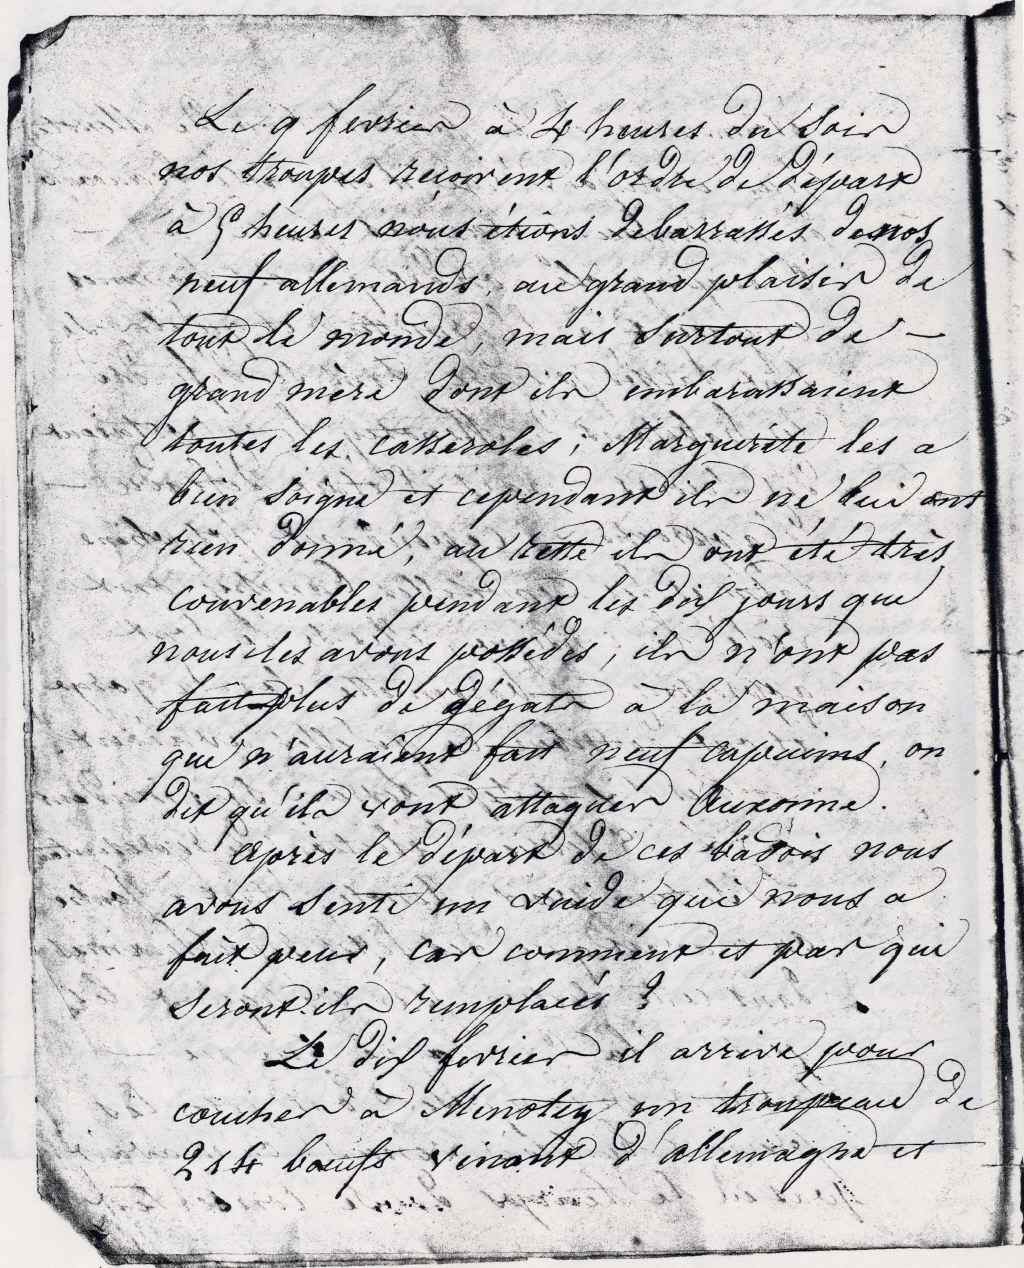 Le 9 fevrier à 4 heures du soir
nos troupes reçoivent l'ordre de départ
à 5 heures nous étions debarrassés de nos
neuf allemands, au grand plaisir de
tout le monde, mais surtout de —
grand mère dont ils embarassaient
toutes les casseroles ; Marguerite les a
bien soigné et cependant ils ne lui ont
rien donné, au reste ils ont été très
convenables pendant les dix jours que
nous les avons possédés ; ils n'ont pas
fait plus de dégats à la maison
que n'auraient fait neuf capucins, on
dit qu'ils vont attaquer Auxonne.
Après le départ de ces badois nous
avons senti un vuide qui nous a
fait peur, car comment et par qui
seront-ils remplacés ?
Le dix fevrier il arrive pour
coucher à Menotey un troupeau de
214 bœufs venant d'allemagne et